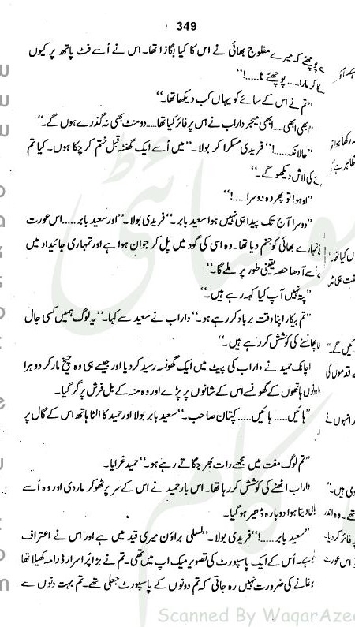 349
پوچھئے کہ میرے مفلوج بھائی نے اس کا کیا بگاڑا تھا۔ اس نے اُسے فٹ پاتھ پر کیوں
کر مارا..... پوچھئے نا.....!''
''تم نے اس کے سائے کو یہاں کب دیکھا تھا۔''
ابھی ابھی..... ابھی میجر داراب نے اس پر فائر کیا تھا..... دو منٹ بھی نہ گذرے ہوں گے۔''
''حالانکہ.....!'' فریدی مسکرا کر بولا۔ ''میں اُسے ایک گھنٹہ قبل ختم کر چکا ہوں۔ کیا تم
کی لاش دیکھو گے۔''
''اوہو! تو پھر وہ دوسرا.....!''
''دوسرا آج تک پیدا ہی نہیں ہوا سعید بابر۔'' فریدی بولا۔ ''اور سعید بابر..... اس عورت
تمہارے بھائی کو جنم دیا تھا۔ وہ اسی کی گود میں پل کر جوان ہوا ہے اور تمہاری جائیداد میں
سے آدھا حصہ یقینی طور پر ملے گا۔''
''پتہ نہیں آپ کیا کہہ رہے ہیں۔''
''تم بیکار اپنا وقت برباد کر رہے ہو۔'' داراب نے سعید سے کہا۔ ''یہ لوگ ہمیں کسی جال
پھانسنے کی کوشش کر رہے ہیں۔''
اچانک حمید نے داراب کی پیٹ میں ایک گھونسہ رسید کر دیا اور جیسے ہی وہ چیخ مار کر دوہرا
دونوں ہاتھوں کے گھونسے اس کے شانوں پر پڑے اور وہ منہ کے بل فرش پر گر گیا۔
''ہائیں..... ہائیں..... کپتان صاحب۔'' سعید بابر بولا اور حمید کا الٹا ہاتھ اس کے گال پر
''تم لوگ مفت میں مجھے رات بھر جگاتے رہے ہو۔'' حمید غرایا۔
داراب اٹھنے کی کوشش کر رہا تھا۔ اس بار حمید نے اس کے سر پر ٹھوکر مار دی اور وہ اُسے
دوبارہ ڈھیر ہو گیا۔
''سعید بابر.....!'' فریدی بولا۔ ''لسلی براؤن میری قید میں ہے اور اس نے اعتراف
اُس کے ایک پاسپورٹ کی تصویر میک اپ میں تھی۔ تم نے بڑا پراسرار ڈرامہ کھیلا تھا
کی ضرورت نہیں رہ جاتی کہ تم دونوں کے پاسپورٹ جعلی تھے۔ تم بہت دنوں سے
Scanned By WaqarAzee